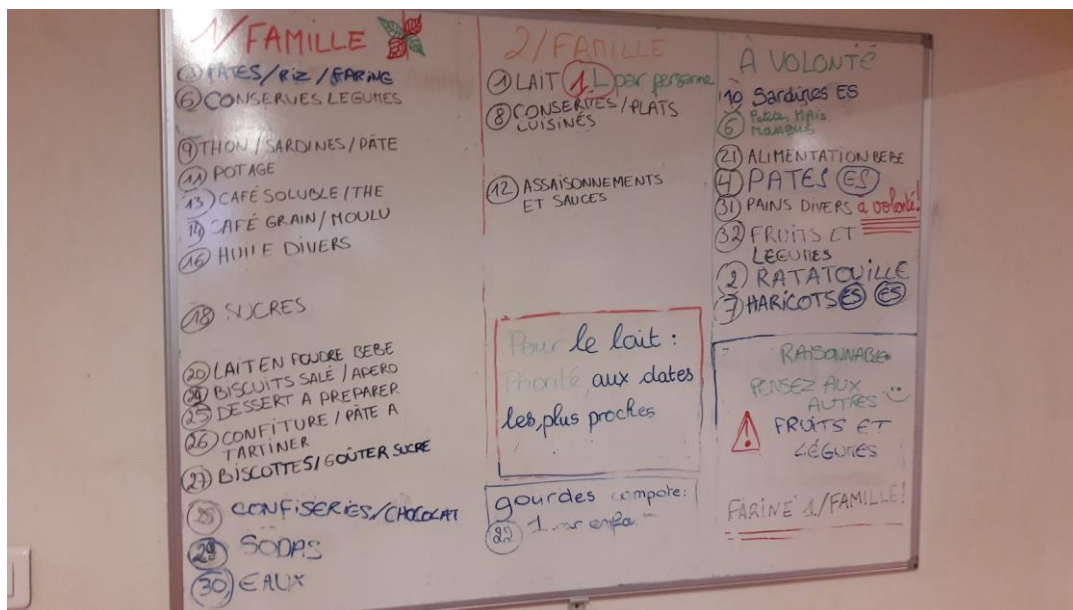 1/FAMILLE
③ PATES/RIZ/FARINE
⑥ CONSERVES LEGUMES
⑨ THON/SARDINES/PÂTE
⑪ POTAGE
⑬ CAFÉ SOLUBLE/THE
⑭ CAFÉ GRAIN/MOULU
⑯ HUILE DIVERS
⑱ SUCRES
⑳ LAIT EN POUDRE BEBE
BISCUITS SALÉ/APERO
㉕ DESSERT A PREPARER
㉖ CONFITURE/PÂTE A
TARTINER
㉗ BISCOTTES/GOÛTER SUCRE
CONFISERIES/CHOCOLAT
㉙ SODAS
㉚ EAUX
2/FAMILLE
① LAIT 1L par personne
⑧ CONSERVES/PLATS
CUISINÉS
⑫ ASSAISONNEMENTS
ET SAUCES
Pour le lait :
Priorité aux dates
les plus proches
gourdes compote:
㉒ 1
À VOLONTÉ
Sardines ES
⑥
㉑ ALIMENTATION BEBE
④ PATES ES
㉛ PAINS DIVERS a volonté!
㉜ FRUITS ET
LEGUMES
② RATATOUILLE
⑦ HARICOTS ES ES
RAISONNABLE
PENSEZ AUX
AUTRES
! FRUITS ET
LÉGUMES
FARINE 1/FAMILLE!